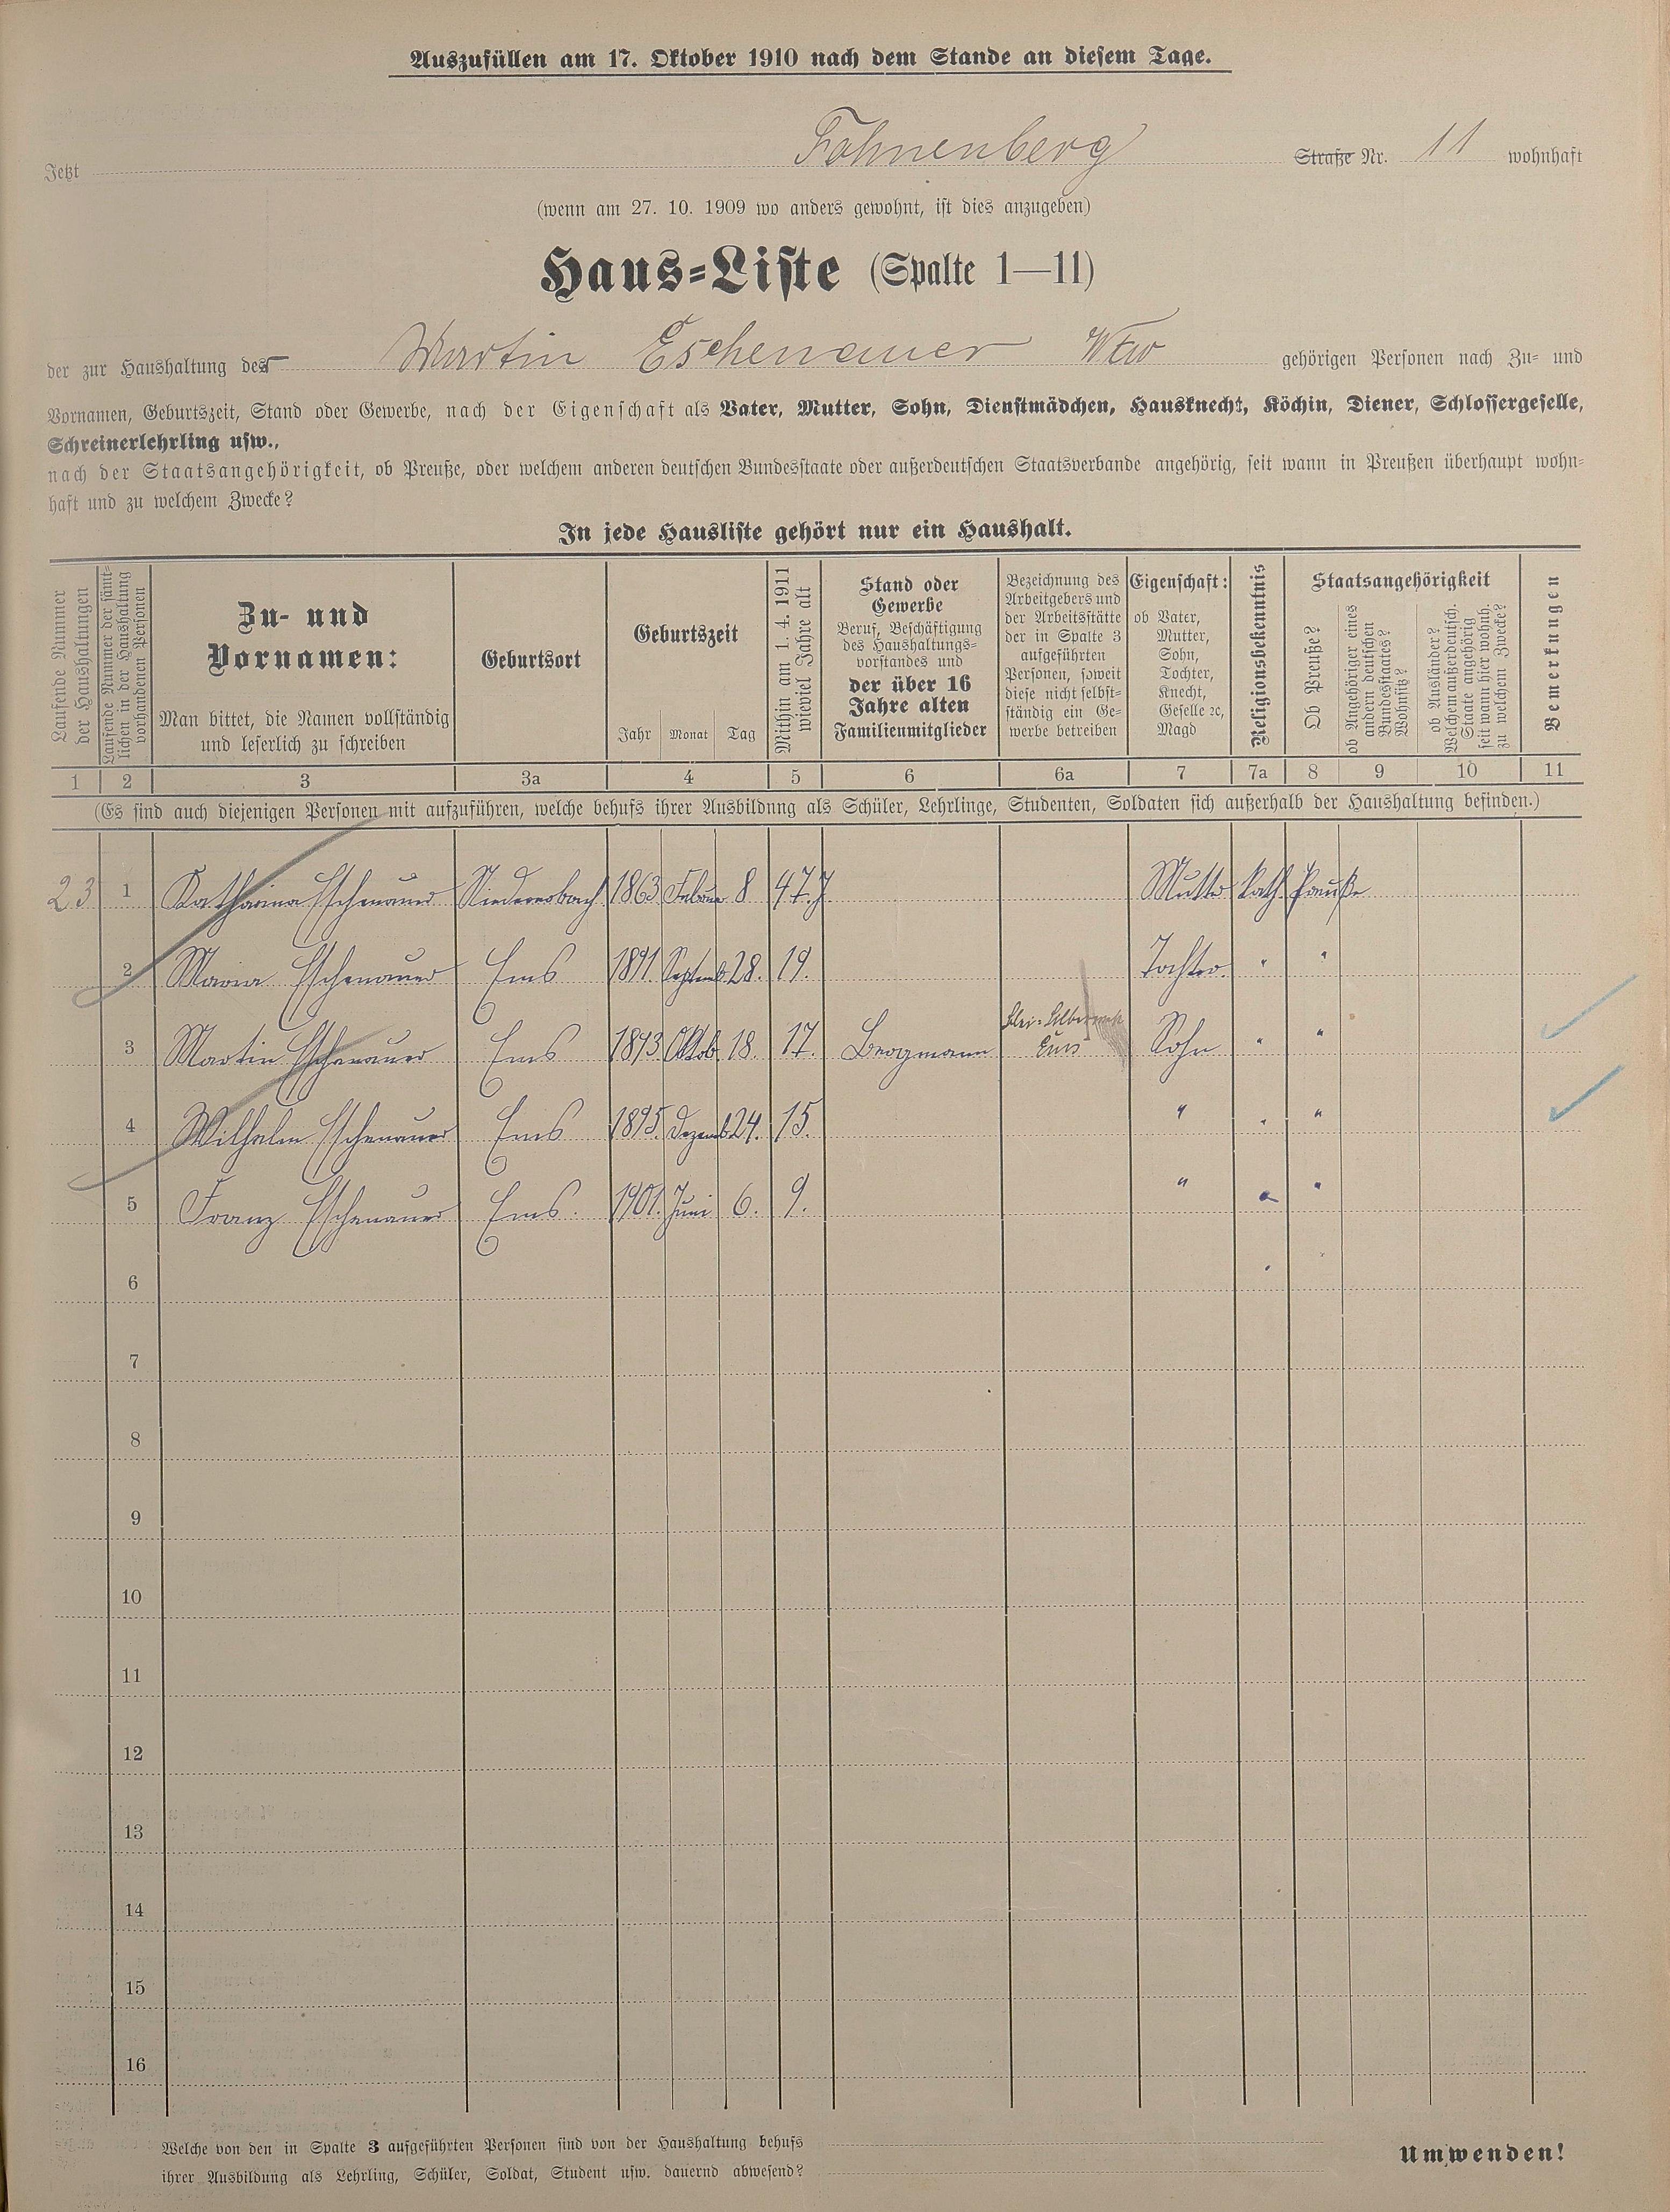 Auszufüllen am 17. Oktober 1910 nach dem Stande an diesem Tage.
Jetzt Fohnenberg Straße Nr. 11 wohnhaft
(wenn am 27. 10. 1909 wo anders gewohnt, ist dies anzugeben)
Haus-Liste (Spalte 1—11)
der zur Haushaltung des Martin Eschenauer Wtw gehörigen Personen nach Zu- und
Vornamen, Geburtszeit, Stand oder Gewerbe, nach der Eigenschaft als Vater, Mutter, Sohn, Dienstmädchen, Hausknecht, Köchin, Diener, Schlossergeselle,
Schreinerlehrling usw.,
nach der Staatsangehörigkeit, ob Preuße, oder welchem anderen deutschen Bundesstaate oder außerdeutschen Staatsverbande angehörig, seit wann in Preußen überhaupt wohn-
haft und zu welchem Zwecke?
In jede Hausliste gehört nur ein Haushalt.
Laufende Nummer der Haushaltungen
Laufende Nummer der sämt-lichen in der Haushaltung vorhandenen Personen
Zu- und Vornamen:
Man bittet, die Namen vollständig und leserlich zu schreiben
Geburtsort
Geburtszeit
Jahr Monat Tag
Mithin am 1. 4. 1911 wieviel Jahre alt
Stand oder Gewerbe
Beruf, Beschäftigung des Haushaltungs-vorstandes und
der über 16 Jahre alten Familienmitglieder
Bezeichnung des Arbeitgebers und der Arbeitsstätte der in Spalte 3 aufgeführten Personen, soweit diese nicht selbst-ständig ein Ge-werbe betreiben
Eigenschaft:
ob Vater, Mutter, Sohn, Tochter, Knecht, Geselle ꝛc, Magd
Religionsbekenntnis
Staatsangehörigkeit
Ob Preuße?
ob Angehöriger eines andern deutschen Bundesstaates? Wohnsitz?
ob Ausländer? Welchem außerdeutsch. Staate angehörig seit wann hier wohnh. zu welchem Zwecke?
Bemerkungen
1 2 3 3a 4 5 6 6a 7 7a 8 9 10 11
(Es sind auch diejenigen Personen mit aufzuführen, welche behufs ihrer Ausbildung als Schüler, Lehrlinge, Studenten, Soldaten sich außerhalb der Haushaltung befinden.)
23 1 Katharina Eschenauer Niederersbach 1863 Februar 8 47 J. Mutter kath. Preuße
2 Maria Eschenauer Ems 1891. Septemb. 28. 19. Tochter. " "
3 Martin Eschenauer Ems 1893 Oktob. 18. 17. Bergmann Blei- Ems Sohn " "
4 Wilhelm Eschenauer Ems 1895. Dezemb. 24. 15. " " "
5 Franz Eschenauer Ems. 1901. Juni 6. 9. " " "
6
7
8
9
10
11
12
13
14
15
16
Welche von den in Spalte 3 aufgeführten Personen sind von der Haushaltung behufs
ihrer Ausbildung als Lehrling, Schüler, Soldat, Student usw. dauernd abwesend?
Umwenden!